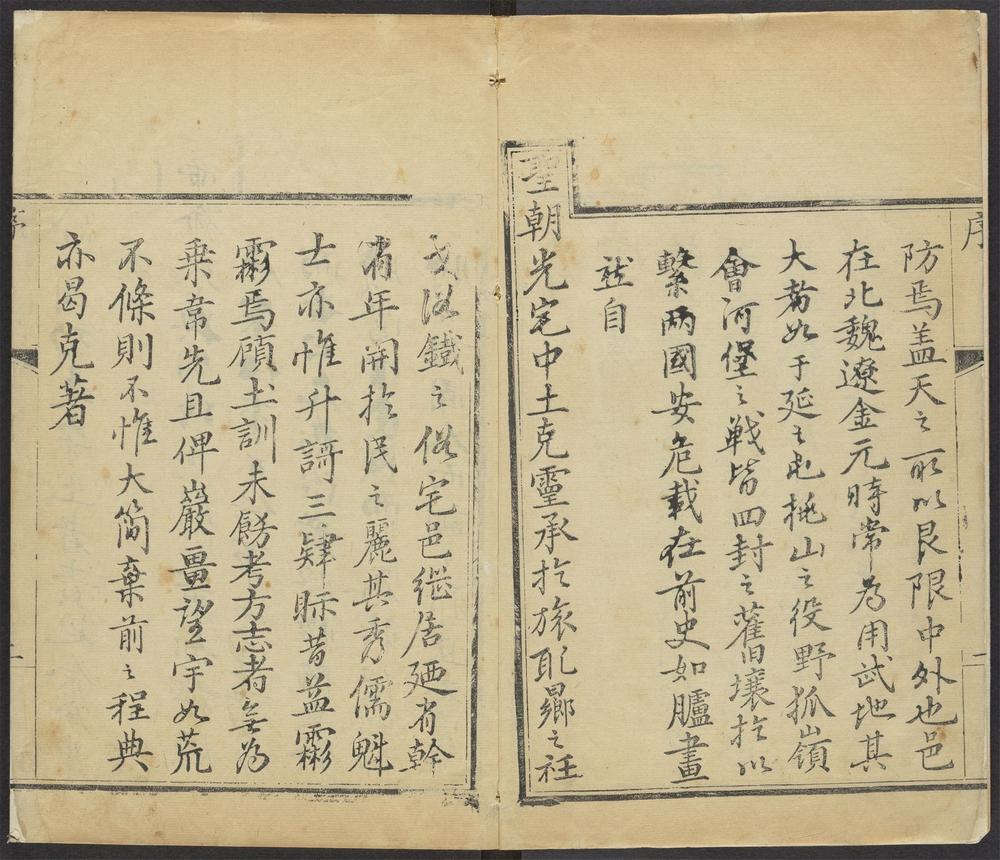 序
防焉盖天之所以艮限中外也邑
在北魏遼金元時常為用武地其
大者如于延之屯挑山之役野狐嶺
會河堡之戰皆四封之舊壤於以
繫兩國安危載在前史如臚畫
玆自
聖朝光宅中土克靈承於旅耴鄉之
俗鐵之俗宅邑继居廼省幹
省年開於民之麗其秀儒魁
士亦惟升謌三肄眎昔益霦
霦焉顾土訓未餝考方志者無為
乗韋先且俾巖畺望宇如荒
不條則不惟大简棄前之程典
亦曷克著
序